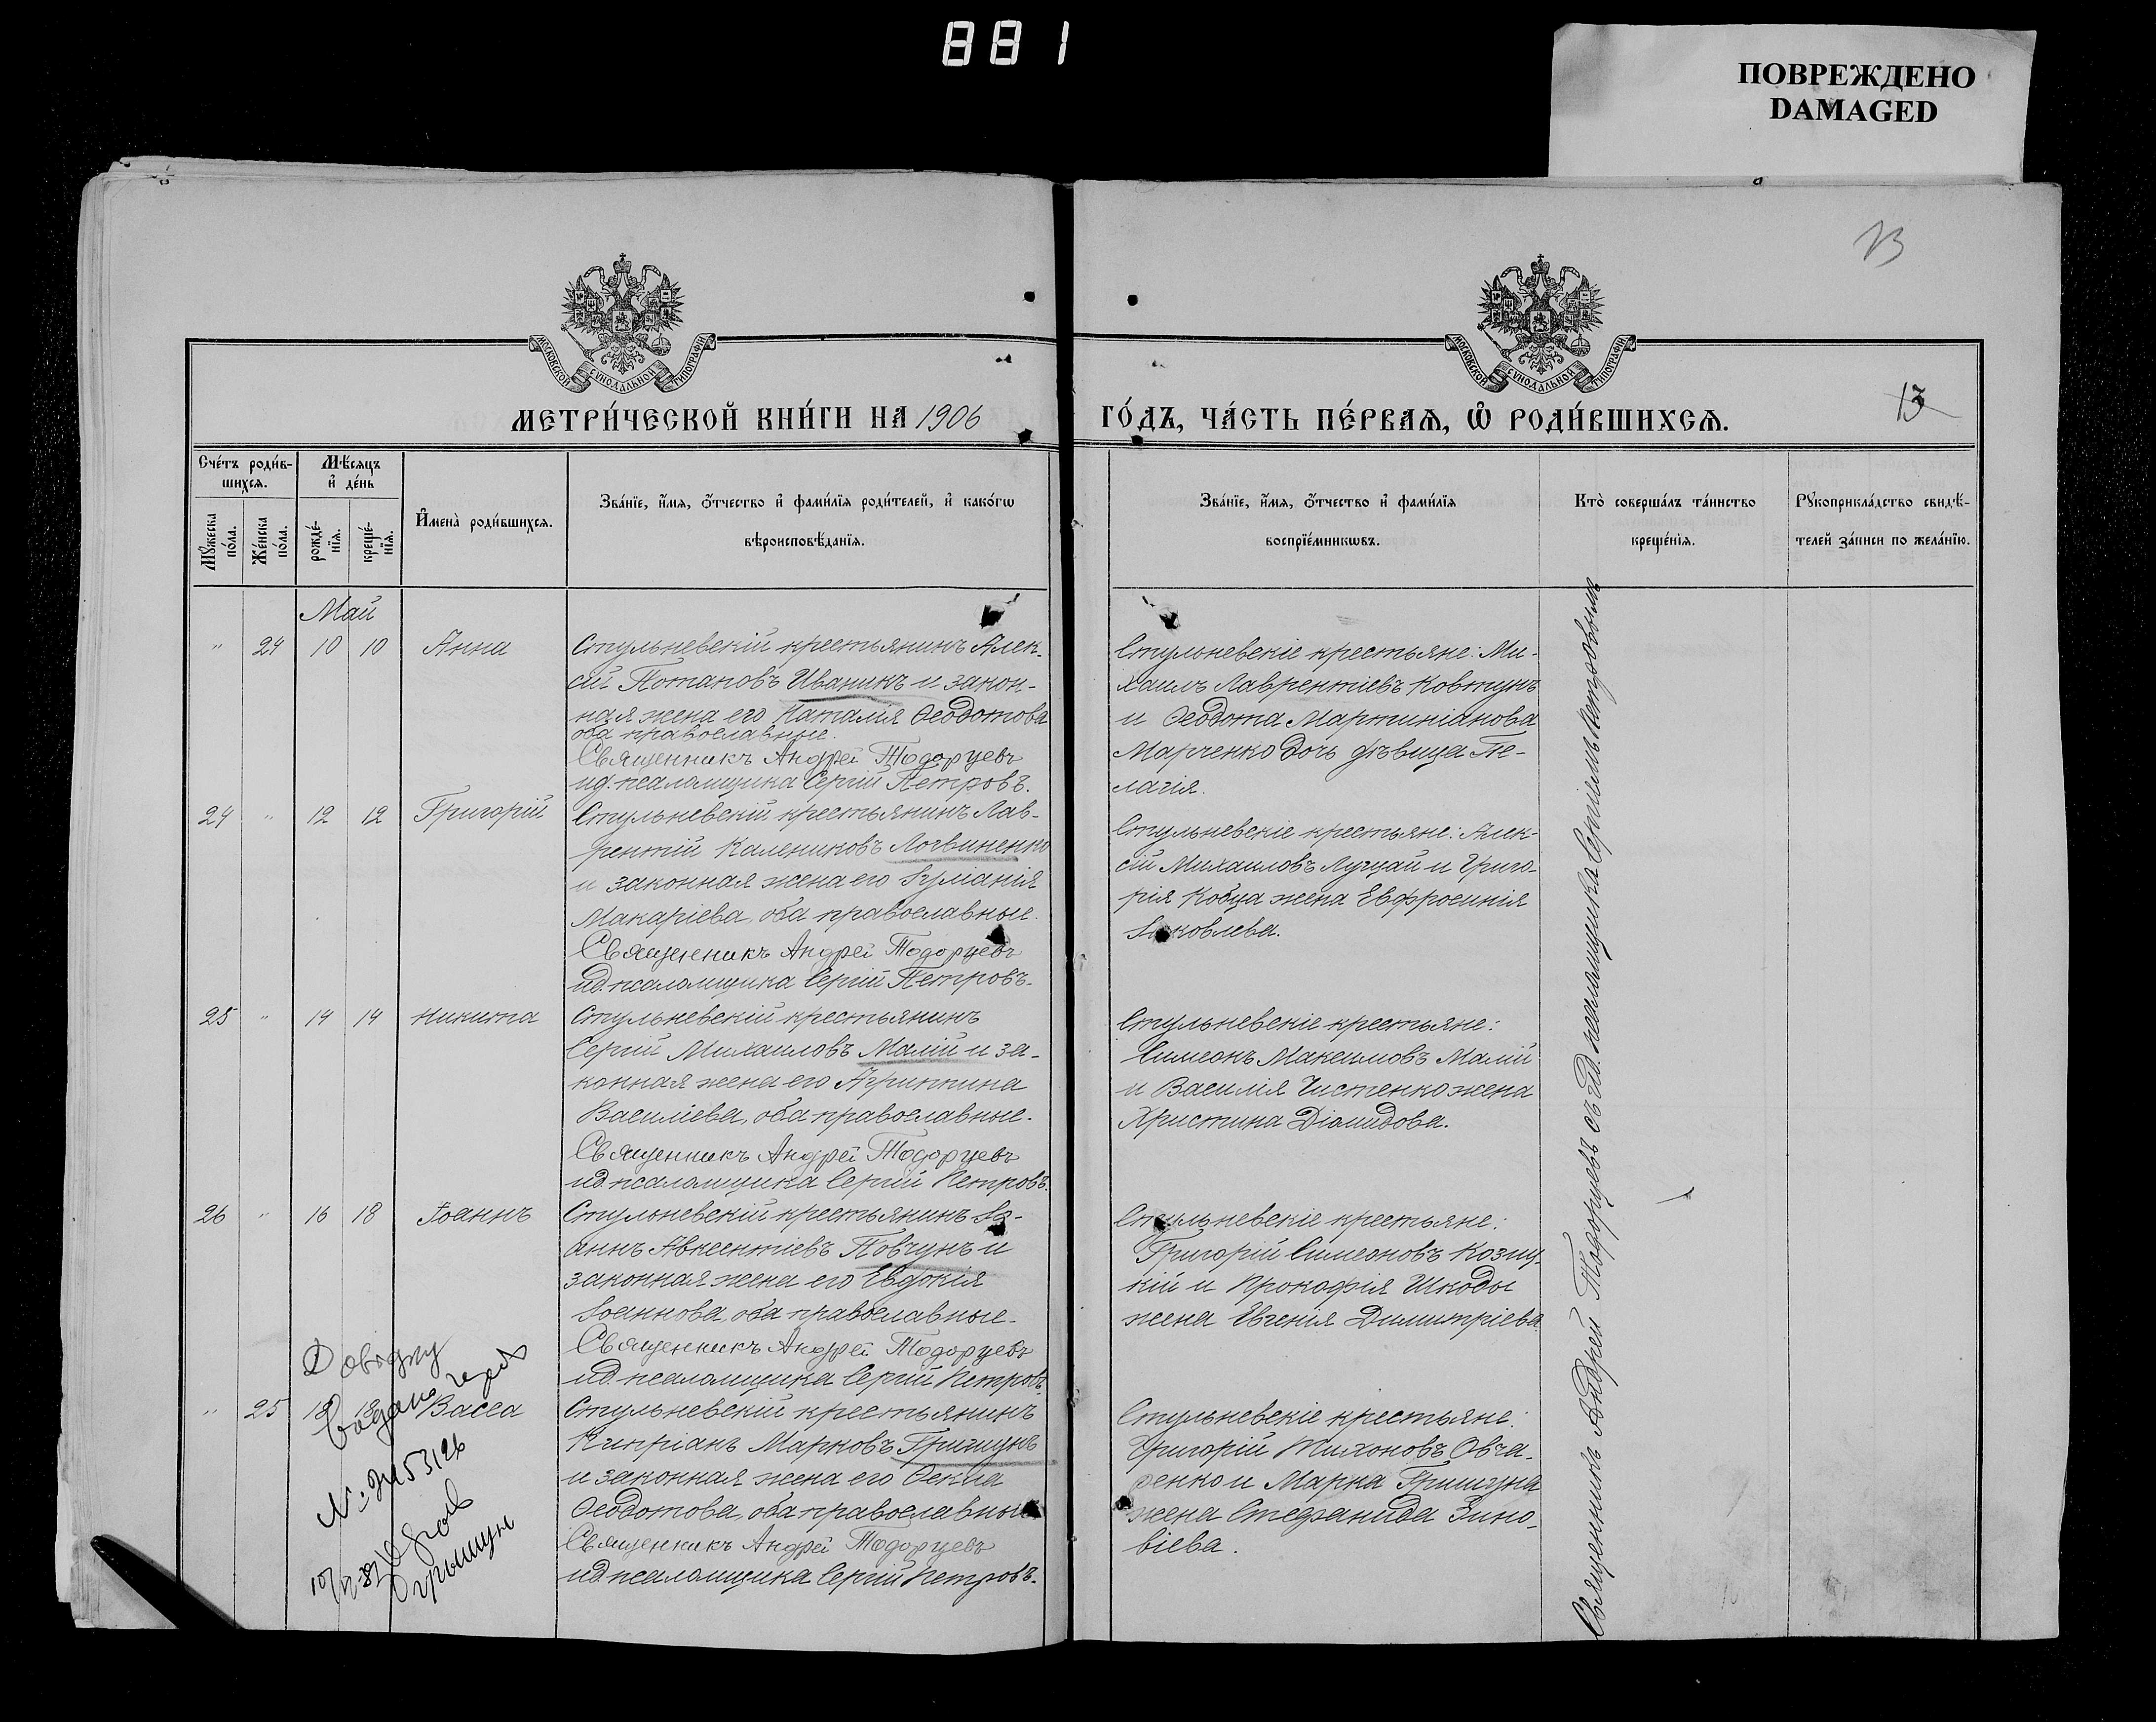 881
ПОВРЕЖДЕНО
DAMAGED
13
МОСКОВСКОЙ СѴНОДАЛЬНОЙ ТИПОГРАФІИ
МОСКОВСКОЙ СѴНОДАЛЬНОЙ ТИПОГРАФІИ
МЕТРИ́ЧЕСКОЙ КНИ́ГИ НА 1906
ГО́ДЪ, ЧА́СТЬ ПЕ́РВАѦ, Ѡ҆ РОДИ́ВШИХСѦ.
13
Сче́тъ роди́в-
шихсѧ.
Мꙋ́жеска
по́ла.
Же́нска
по́ла.
Мѣ́сѧцъ
и҆ де́нь
рожде́-
нїѧ.
креще́-
нїѧ.
И҆мена̀ роди́вшихсѧ.
Зва́нїе, и҆́мѧ, ѻ҆́тчество и҆ фами́лїѧ роди́телей, и҆ како́гѡ
вѣроисповѣ́данїѧ.
Зва́нїе, и҆́мѧ, ѻ҆́тчество и҆ фами́лїѧ
воспрїе́мникѡвъ.
Кто̀ соверша́лъ та́инство
креще́нїѧ.
Рꙋкоприкла́дство свидѣ́-
телей за́писи по жела́нїю.
Май
" 24 10 10 Анна
Стульневскій крестьянинъ Алек-
сій Потаповъ Иваникъ и закон-
ная жена его Наталія Ѳеодотова
оба православные.
Священникъ Андрей Тодорцевъ
ид. псаломщика Сергій Петровъ.
Стульневскіе крестьяне: Ми-
хаилъ Лаврентіевъ Ковтунъ
и Ѳеодота Мартиніанова
Марченко дочь дѣвица Пе-
лагія.
24 " 12 12 Григорій
Стульневскій крестьянинъ Лав-
рентій Калениковъ Логвиненко
и законная жена его Іуліанія
Макаріева, оба православные.
Священникъ Андрей Тодорцевъ
ид. псаломщика Сергій Петровъ.
Стульневскіе крестьяне: Алек-
сій Михаиловъ Луцай и Григо-
рія Кобца жена Евфросинія
Яковлева.
25 " 14 14 Никита
Стульневскій крестьянинъ
Сергій Михаиловъ Малій и за-
конная жена его Агриппина
Василіева, оба православные.
Священникъ Андрей Тодорцевъ
ид. псаломщика Сергій Петровъ.
Стульневскіе крестьяне:
Симеонъ Максимовъ Малій
и Василія Чистенко жена
Христина Діомидова.
26 " 16 18 Іоаннъ
Стульневскій крестьянинъ Іо-
аннъ Авксентіевъ Повчунъ и
законная жена его Евдокія
Іоаннова, оба православные.
Священникъ Андрей Тодорцевъ
ид. псаломщика Сергій Петровъ.
Стульневскіе крестьяне:
Григорій Симеоновъ Козиц-
кій и Прокофія Шкоды
жена Евгенія Димитріева.
" 25 18 18 Васса
Стульневскій крестьянинъ
Кипріанъ Марковъ Гришунъ
и законная жена его Ѳекла
Ѳеодотова, оба православные
Священникъ Андрей Тодорцевъ
ид. псаломщика Сергій Петровъ.
Стульневскіе крестьяне:
Григорій Тихоновъ Овча-
ренко и Марка Гришуна
жена Стефанида Зино-
віева.
Довідку
видано
Священникъ Андрей Тодорцевъ съ ид. псаломщика Сергіемъ Петровымъ